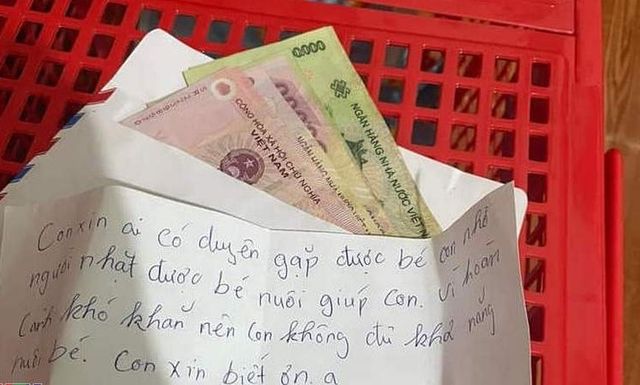 0.000
CỘNG HÒA XÃ HỘI CHỦ NGHĨA
VIỆT NAM
NGÂN HÀNG NHÀ NƯỚC VIỆT
Con xin ai có duyên gặp được bé con nhờ
người nhặt được bé nuôi giúp con. Vì hoàn
cảnh khó khăn nên con không đủ khả năng
nuôi bé. Con xin biết ơn ạ